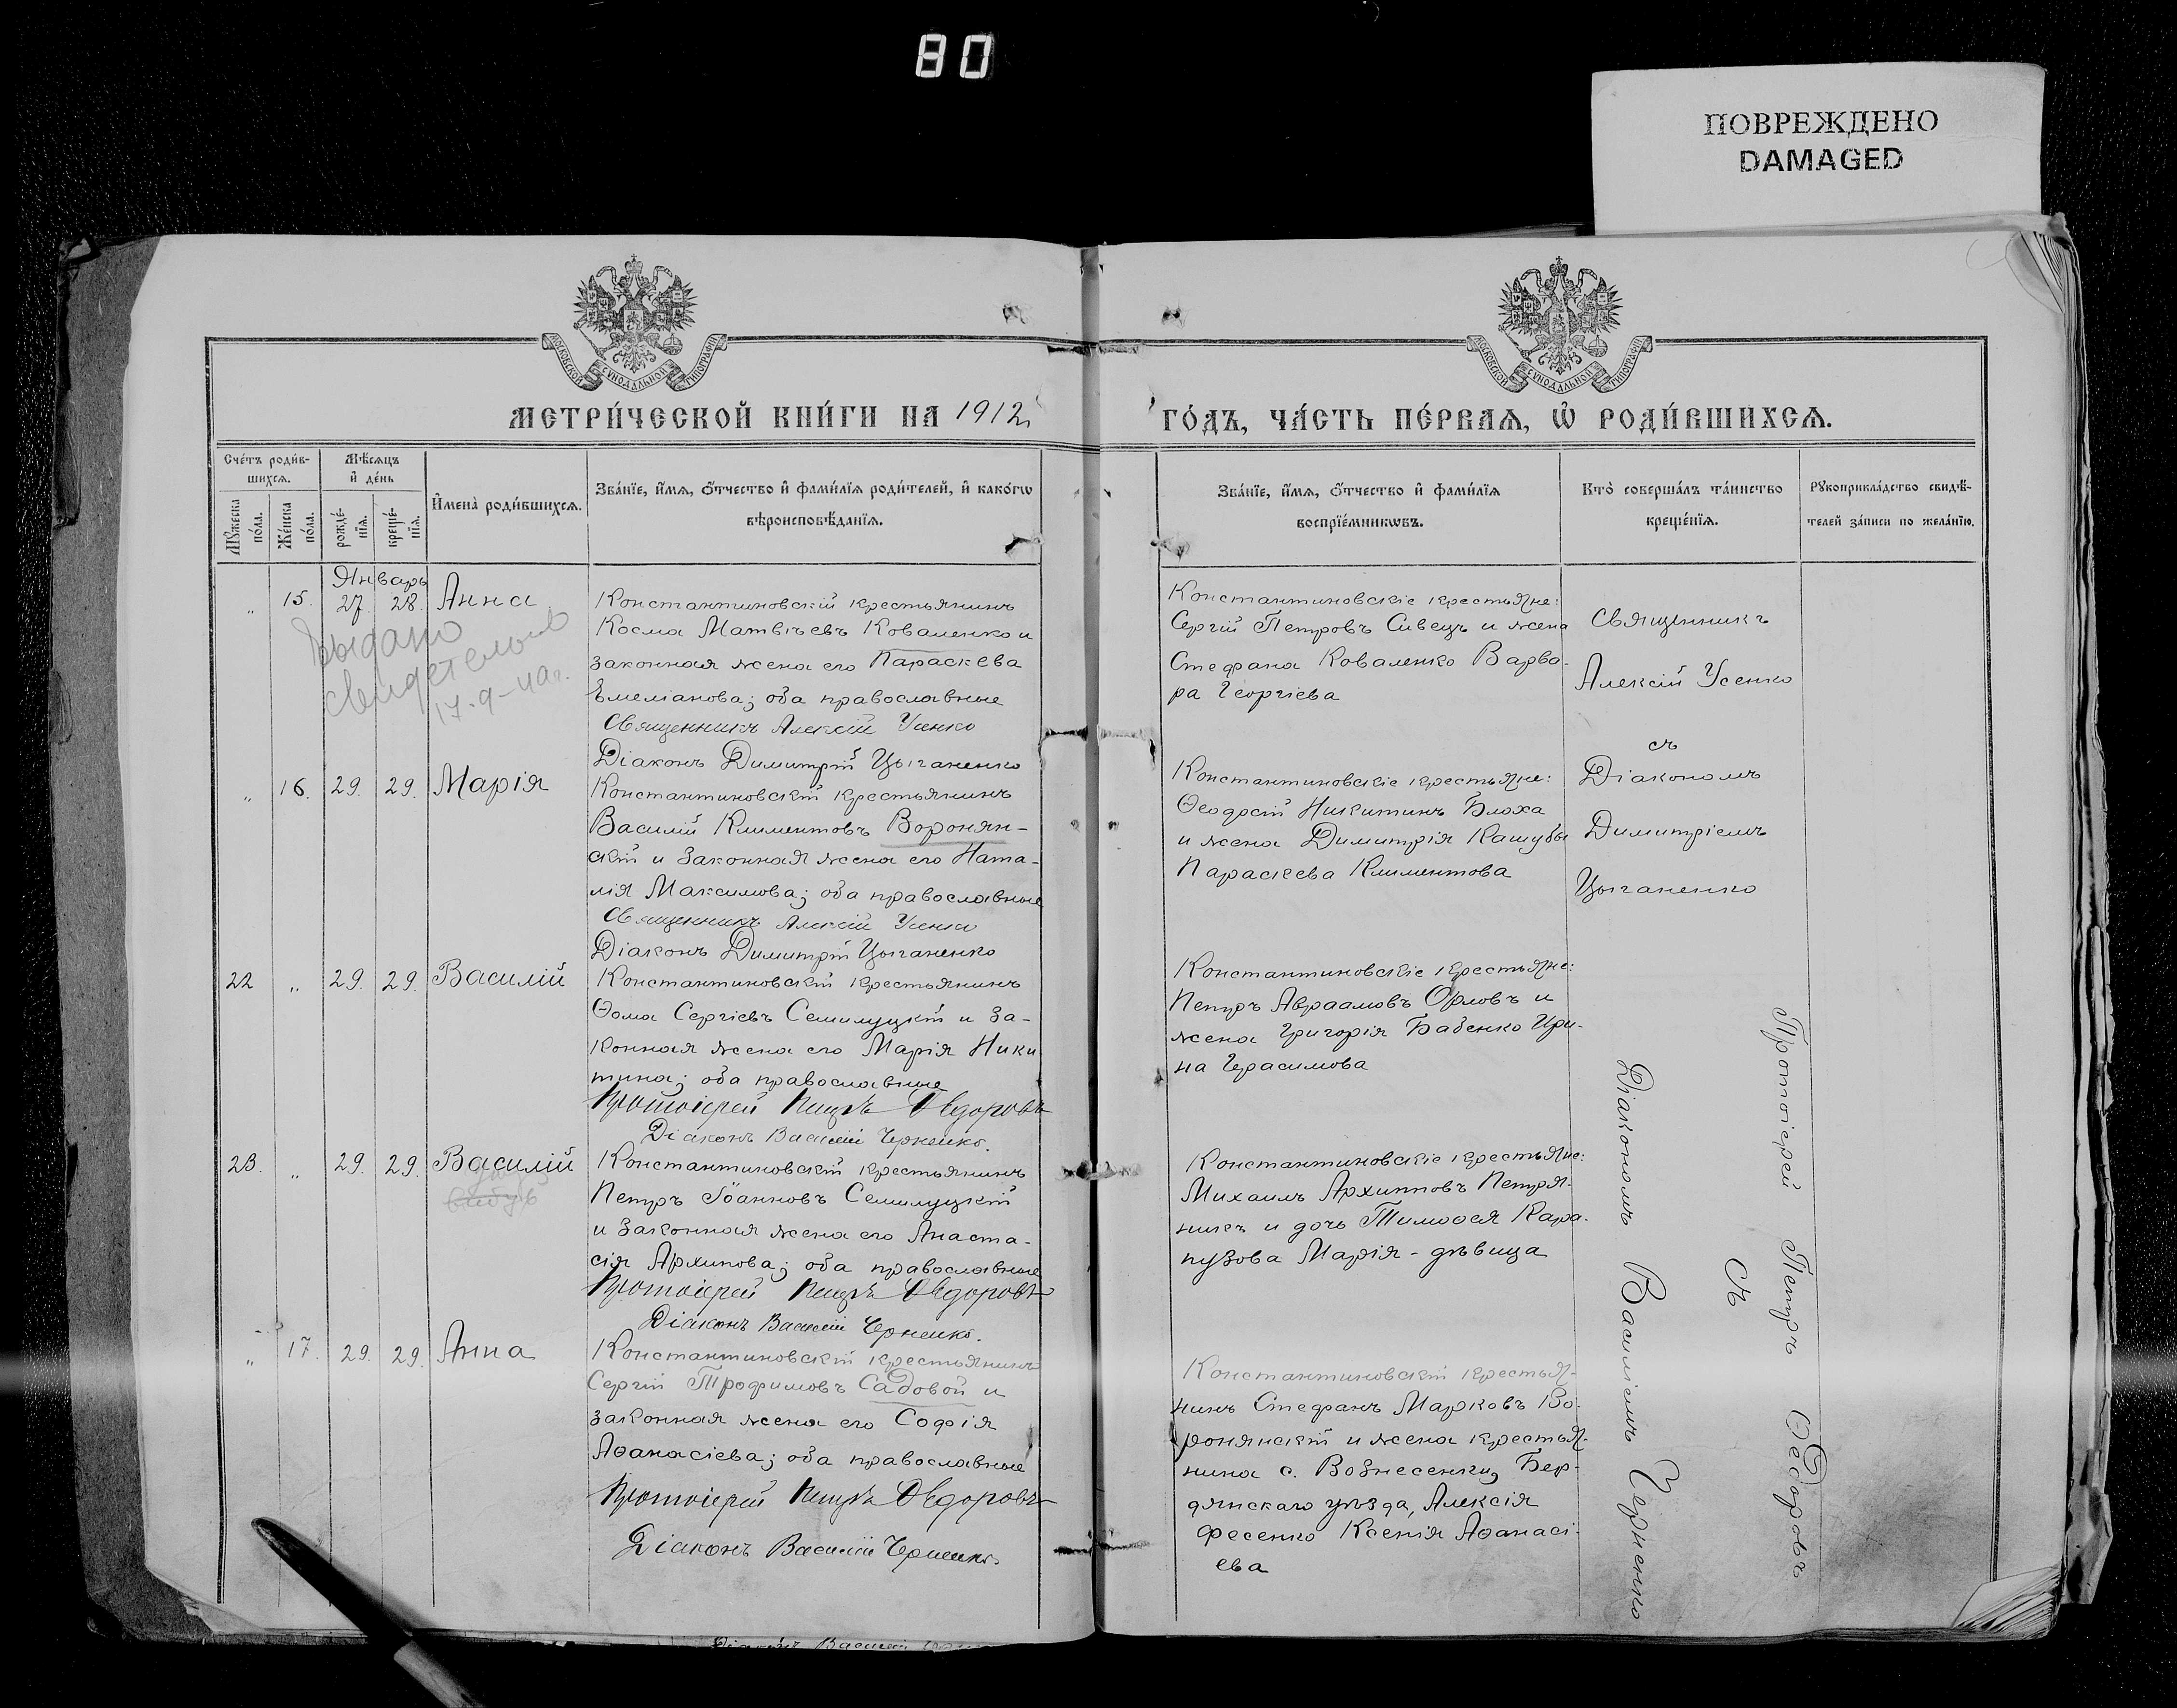 80
ПОВРЕЖДЕНО
DAMAGED
МОСКОВСКОЙ СѴНОДАЛЬНОЙ ТИПОГРАФІИ
МОСКОВСКОЙ СѴНОДАЛЬНОЙ ТИПОГРАФІИ
МЕТРИ́ЧЕСКОЙ КНИ́ГИ НА 1912
ГО́ДЪ, ЧА́СТЬ ПЕ́РВАѦ, Ѡ҆ РОДИ́ВШИХСѦ.
Сче́тъ роди́в-
шихсѧ.
Мꙋ́жеска
по́ла.
Же́нска
по́ла.
Мѣ́сѧцъ
и҆ де́нь
рожде́-
нїѧ.
креще́-
нїѧ.
И҆мена̀ роди́вшихсѧ.
Зва́нїе, и҆́мѧ, ѻ҆́тчество и҆ фами́лїѧ роди́телей, и҆ како́гѡ
вѣроисповѣ́данїѧ.
Зва́нїе, и҆́мѧ, ѻ҆́тчество и҆ фами́лїѧ
воспрїе́мникѡвъ.
Кто̀ соверша́лъ та́инство
креще́нїѧ.
Рꙋкоприкла́дство свидѣ́-
телей за́писи по жела́нїю.
Январь
„ 15. 27. 28. Анна
Константиновскій крестьянинъ
Косма Матвѣевъ Коваленко и
законная жена его Параскева
Емеліанова; оба православные
Священникъ Алексій Усенко
Діаконъ Димитрій Цыганенко
Выдано
свидетельство
17.9-40г.
Константиновскіе крестьяне:
Сергій Петровъ Сивецъ и жена
Стефана Коваленко Варва-
ра Георгіева
Священникъ
Алексій Усенко
съ
Діакономъ
Димитріемъ
Цыганенко
„ 16. 29. 29. Марія
Константиновскій крестьянинъ
Василій Климентовъ Воронян-
скій и законная жена его Ната-
лія Максимова; оба православные
Священникъ Алексій Усенко
Діаконъ Димитрій Цыганенко
Константиновскіе крестьяне:
Ѳеодосій Никитинъ Блоха
и жена Димитрія Кашубы
Параскева Климентова
22 „ 29. 29. Василій
Константиновскій крестьянинъ
Ѳома Сергіевъ Семилуцкій и за-
конная жена его Марія Ники
тина; оба православные
Протоіерей Петръ Ѳедоровъ
Діаконъ Василій Черненко.
Константиновскіе крестьяне:
Петръ Авраамовъ Орловъ и
жена Григорія Бабенко Ири-
на Герасимова
23. „ 29. 29. Василій
Константиновскій крестьянинъ
Петръ Іоанновъ Семилуцкій
и законная жена его Анаста-
сія Архипова; оба православные
Протоіерей Петръ Ѳедоровъ
Діаконъ Василій Черненко.
Константиновскіе крестьяне:
Михаилъ Архипповъ Петря-
никъ и дочь Тимоѳея Кара-
пузова Марія - дѣвица
„ 17. 29. 29. Анна
Константиновскій крестьянинъ
Сергій Трофимовъ Садовой и
законная жена его Софія
Аѳанасіева; оба православные
Протоіерей Петръ Ѳедоровъ
Діаконъ Василій Черненко.
Константиновскій крестья-
нинъ Стефанъ Марковъ Во-
ронянскій и жена крестья-
нина с. Вознесенки, Бер-
дянскаго уѣзда, Алексія
Фесенко Ксенія Аѳанасі-
ева
Протоіерей Петръ Ѳедоровъ
съ
Діакономъ Василіемъ Черненко
Діаконъ Василій